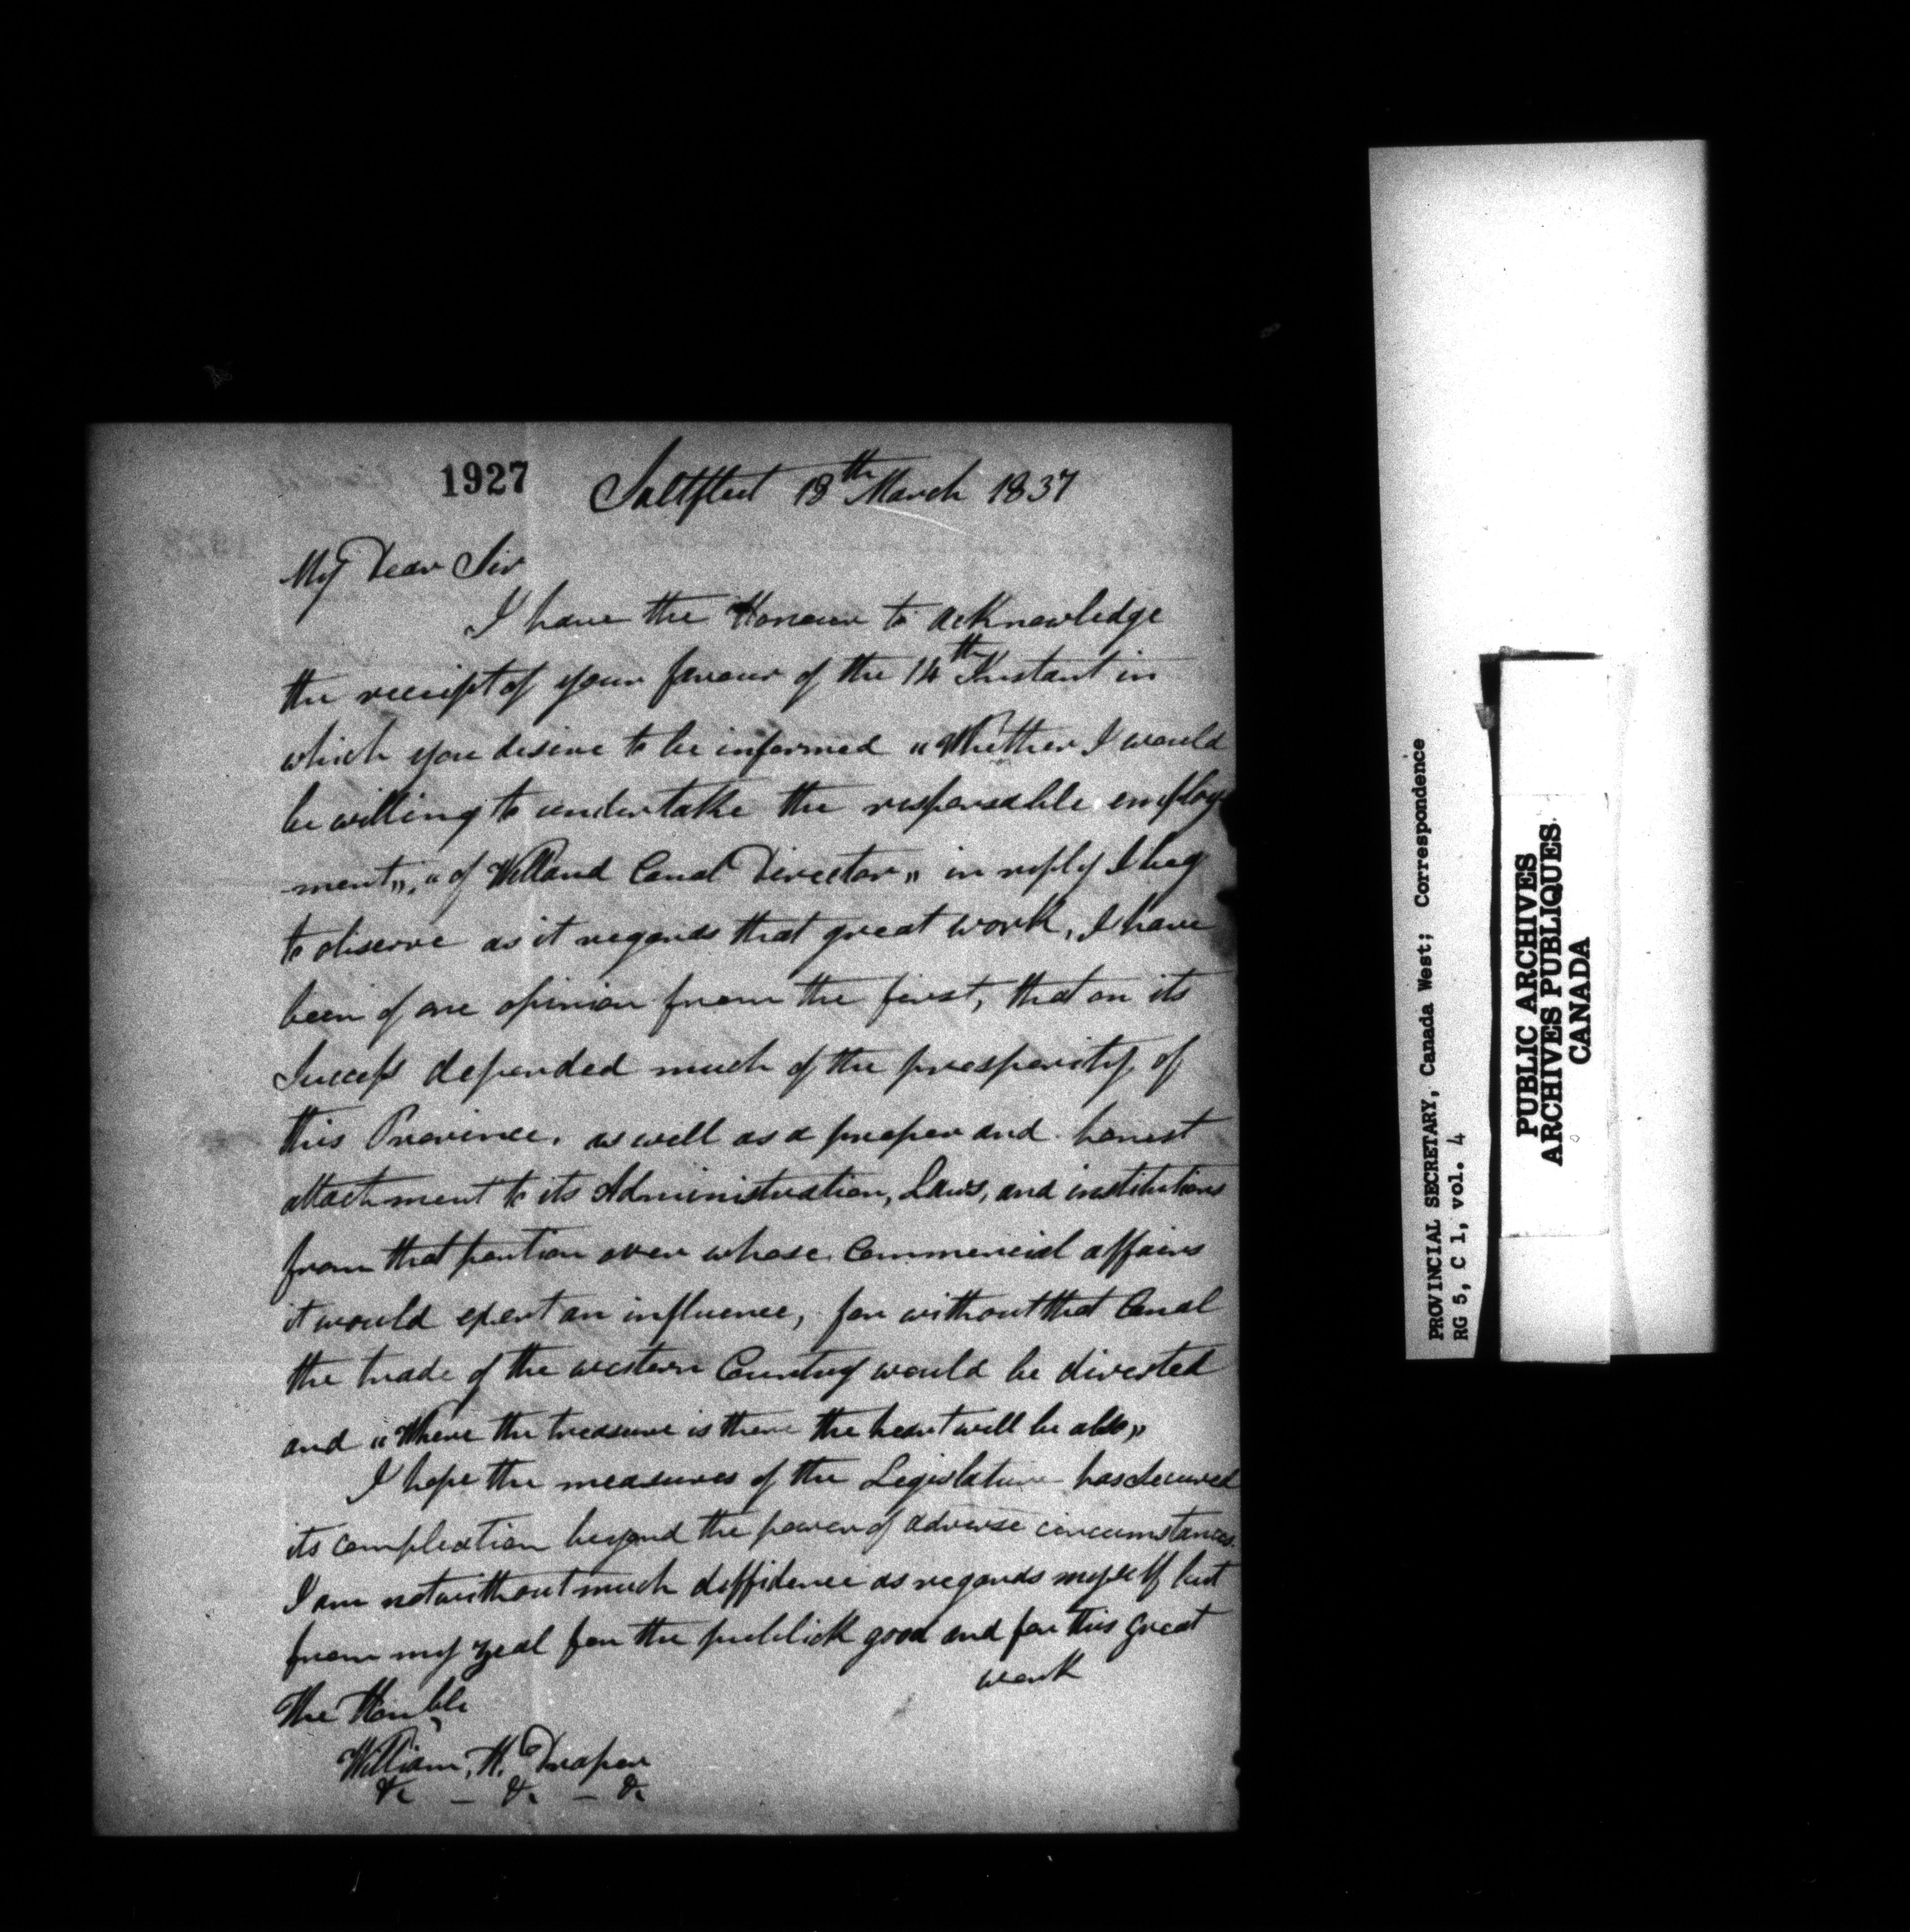 1927
Saltfleet 18th March 1837
My Dear Sir
I have the Honour to acknowledge
the receipt of your favour of the 14th Instant in
which you desire to be informed "Whether I would
be willing to undertake the responsable employ
-ment", "of Welland Canal Director" in reply I beg
to observe as it regards that great work, I have
been of one opinion from the first, that on its
Success depended much of the prosperity of
this Province, as well as a proper and honest
attachment to its Administration, Laws, and institutions
from that portion over whose Commercial affairs
it would exert an influence, for without that Canal
the trade of the western Country would be diverted
and "Where the treasure is there the heart will be also"
I hope the measures of the Legislature has secured
its compleation beyond the power of adverse circumstances.
I am not without much diffidence as regards myself but
from my zeal for the publick good and for this great
work
The Honble
William, H. Draper
&c — &c — &c
PROVINCIAL SECRETARY, Canada West; Correspondence
RG 5, C 1, vol. 4
PUBLIC ARCHIVES
ARCHIVES PUBLIQUES
CANADA